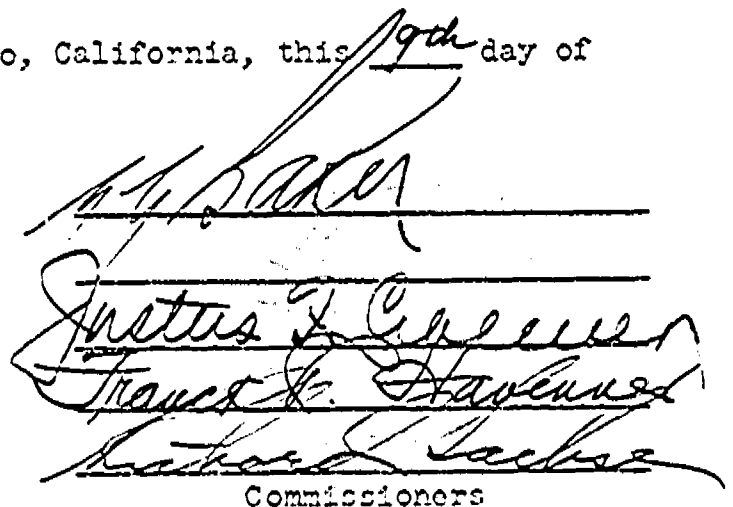 o, California, this 9th day of
Baker
Justus F. Craemer
Franck R. Havenner
Richard Sachse
Commissioners